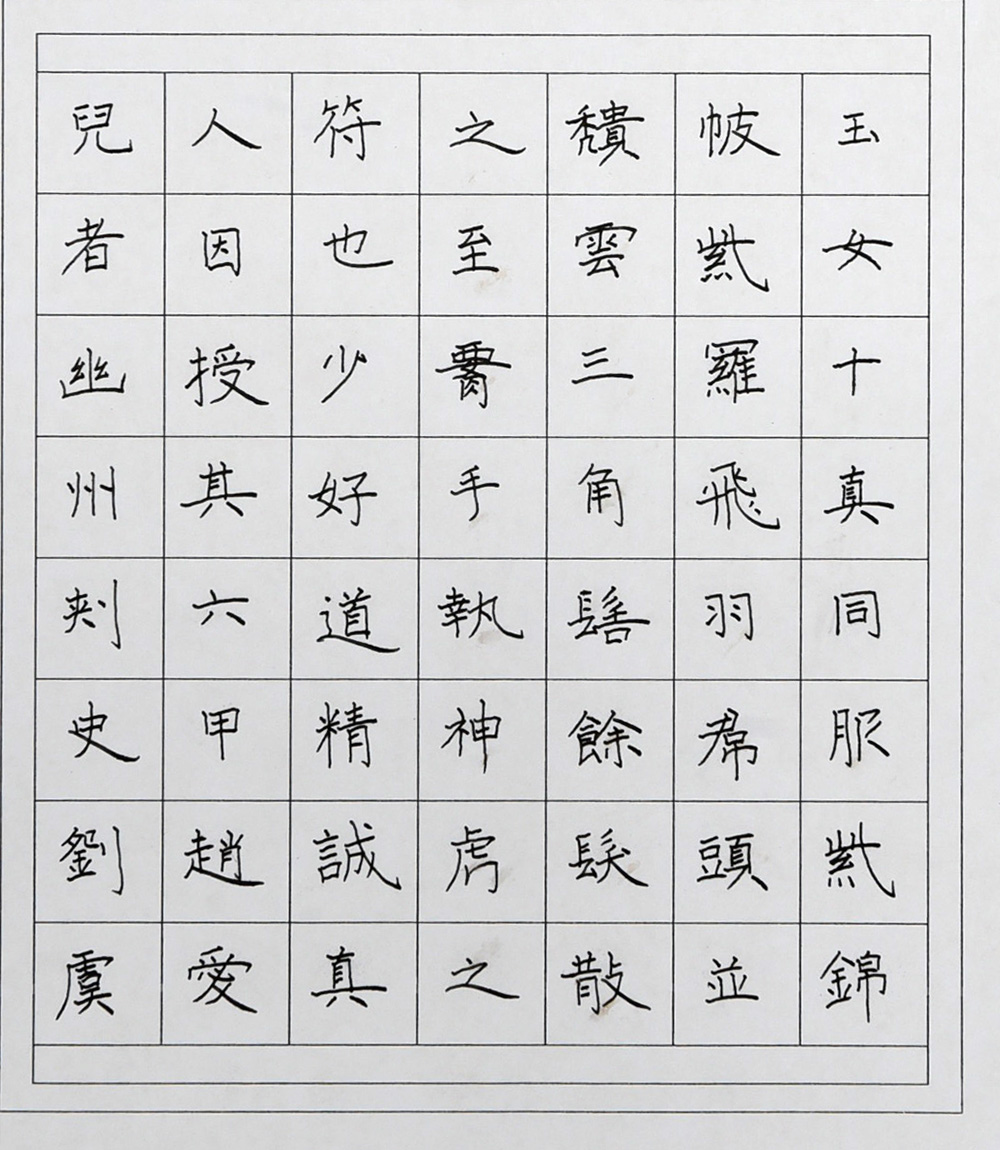 玉女十真同服紫錦
帔紫羅飛羽帬頭並
穨雲三角髻餘髮散
之至腰手執神虎之
符也少好道精誠真
人因授其六甲趙愛
兒者幽州刾史劉虞